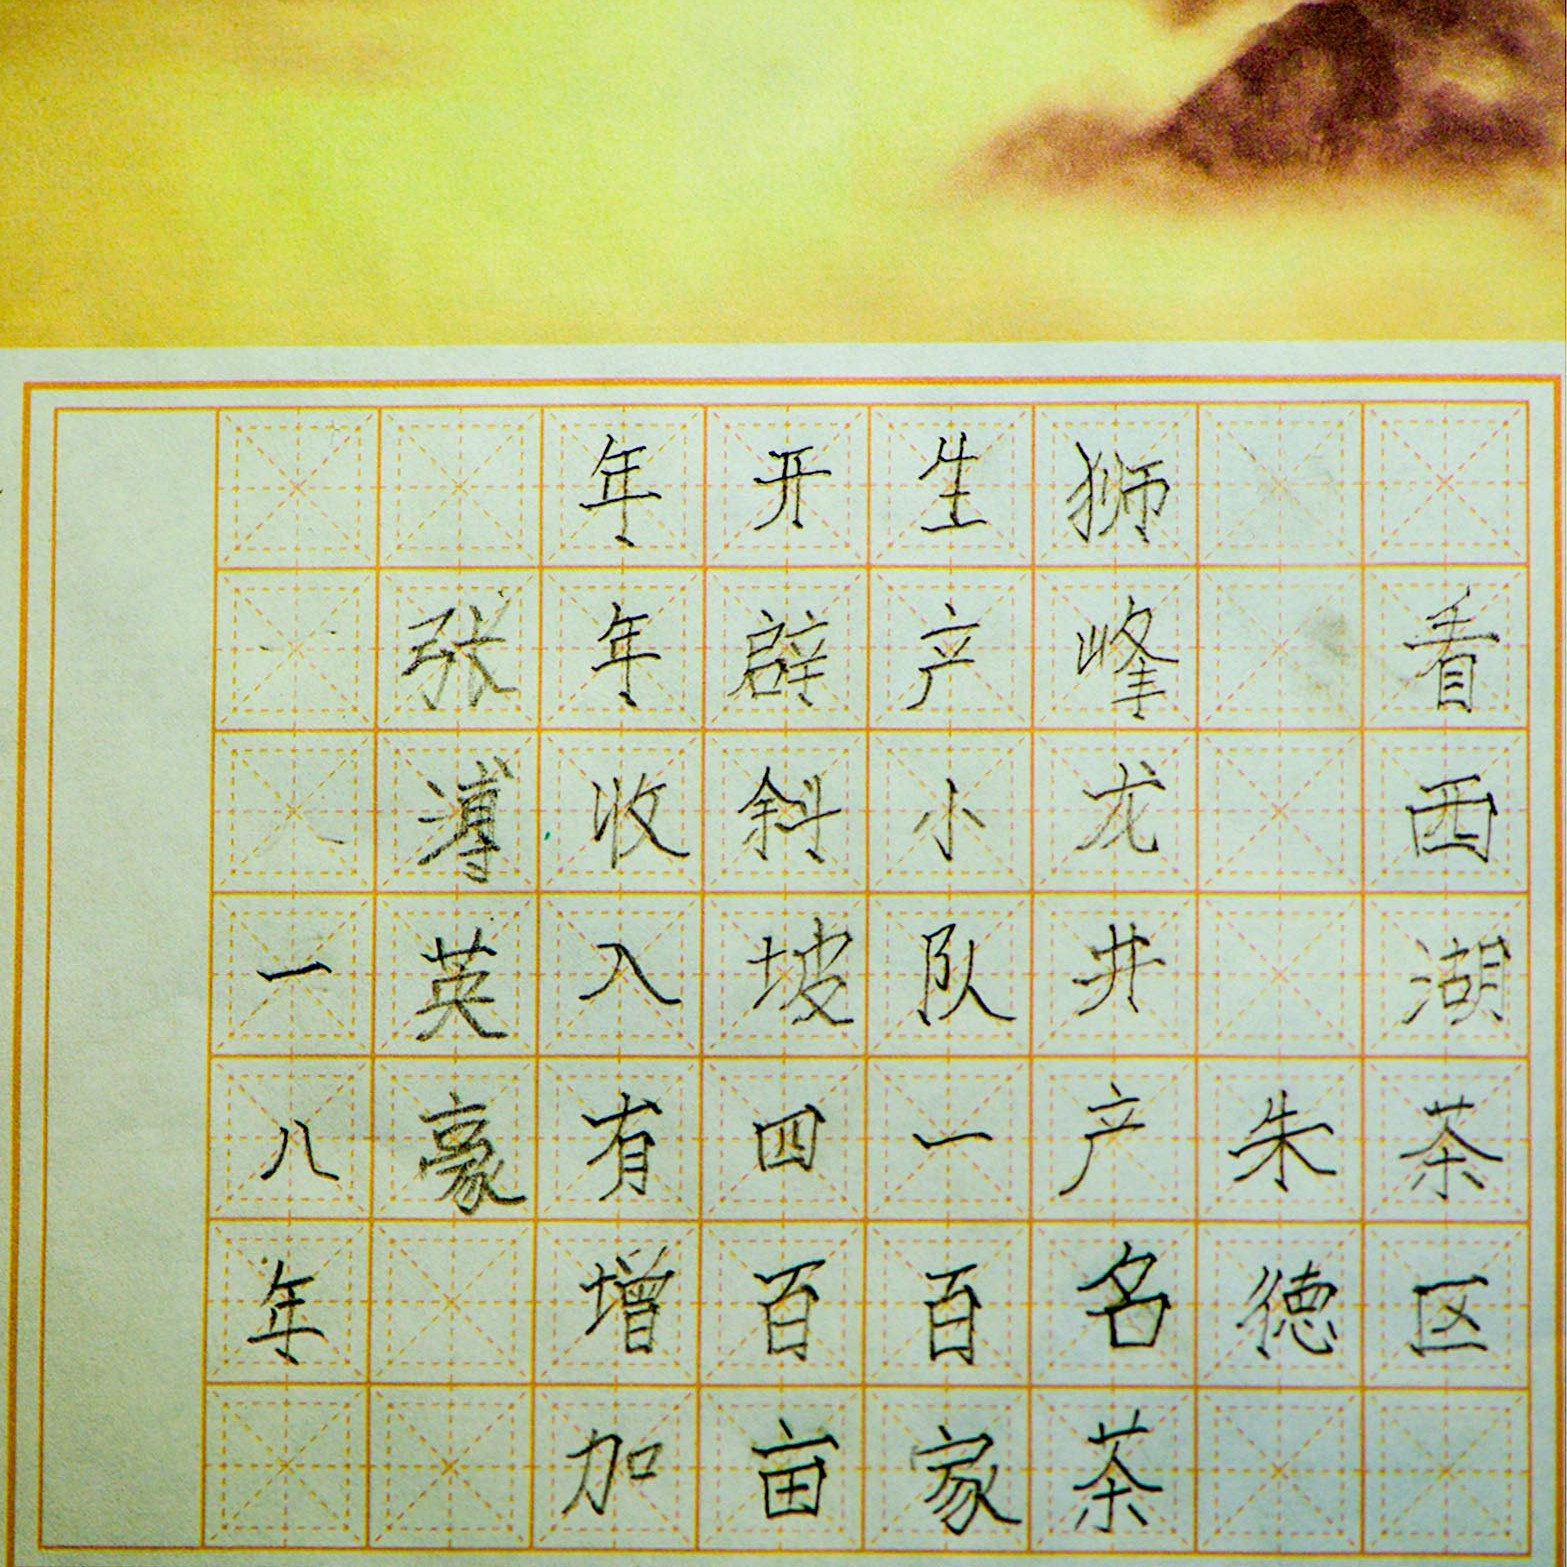 看西湖茶区
朱德
狮峰龙井产名茶
生产小队一百家
开辟斜坡四百亩
年年收入有增加
张溥英豪
一八年